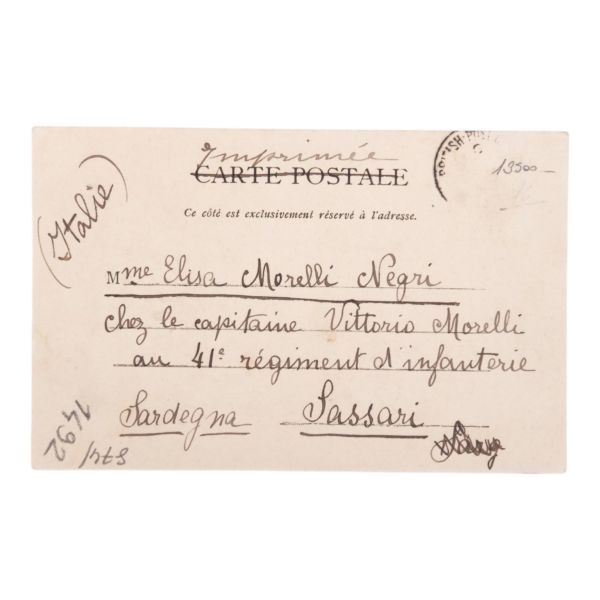 Imprimée
CARTE POSTALE
BRITISH·POST
13500 —
Ce côté est exclusivement réservé à l'adresse.
(Italie)
Mme Elisa Morelli Negri
chez le capitaine Vittorio Morelli
au 41e régiment d'infanterie
Sardegna Sassari
1492